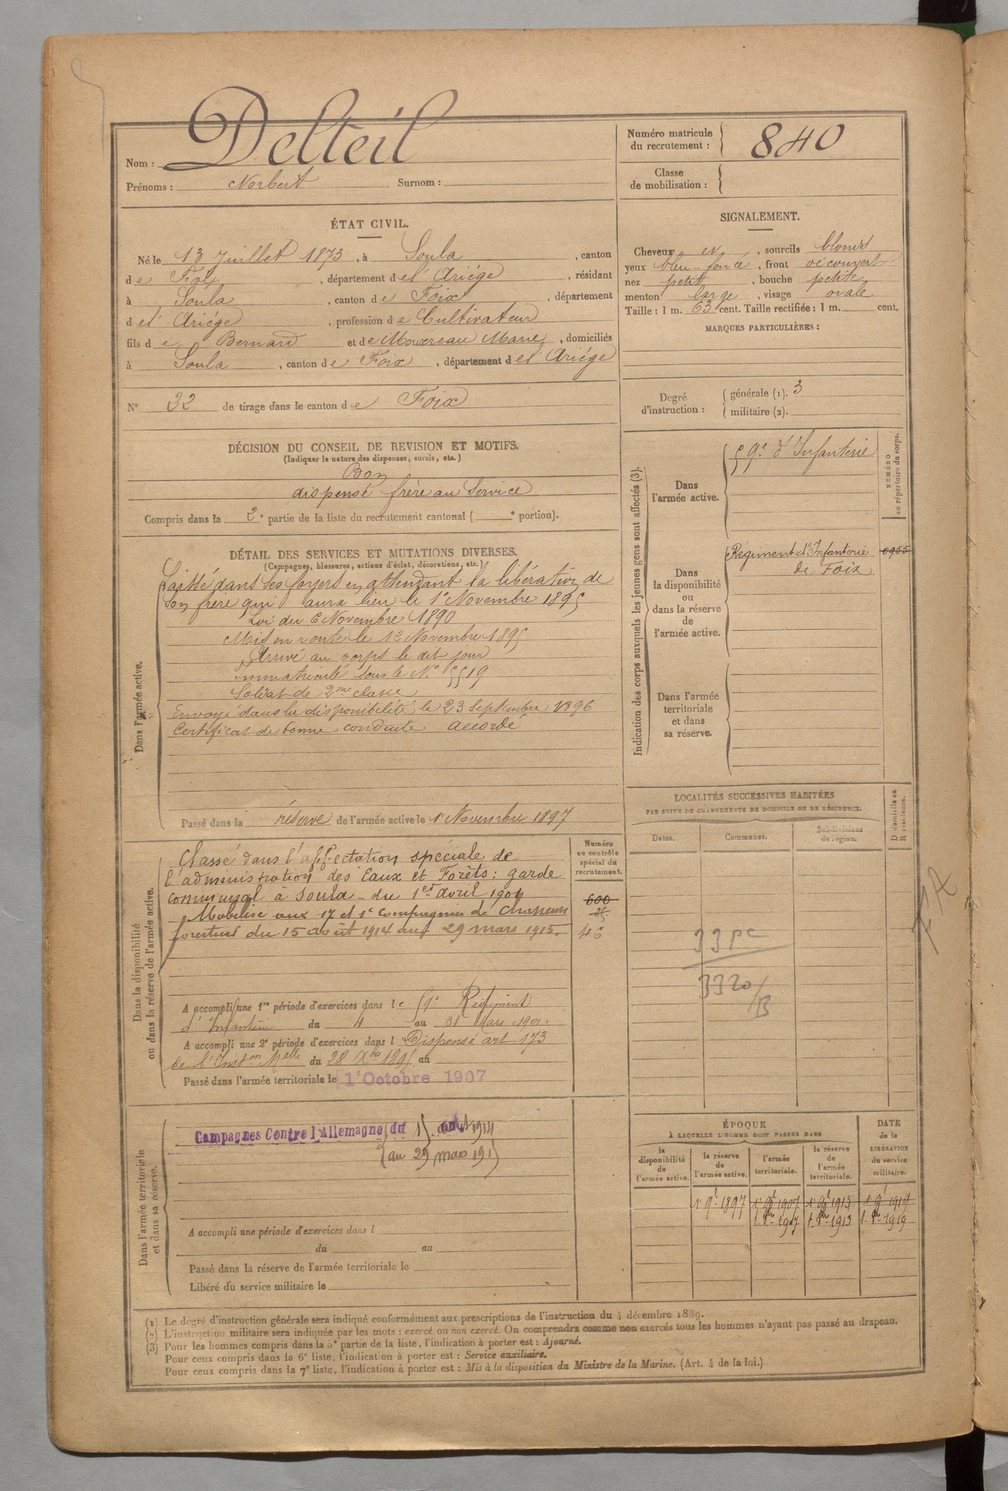 Nom : Delteil
Prénoms : Norbert Surnom :
Numéro matricule
du recrutement : 840
Classe
de mobilisation :
ÉTAT CIVIL.
Né le 13 Juillet 1873, à Soula, canton
de Foix, département de l'Ariége, résidant
à Soula, canton de Foix, département
de l'Ariége, profession de Cultivateur
fils de Bernard et de Marie, domiciliés
à Soula, canton de Foix, département de l'Ariége
N° 32 de tirage dans le canton de Foix
SIGNALEMENT.
Cheveux et, sourcils blonds
yeux bleu-foncé, front découvert
nez petit, bouche petite
menton large, visage ovale
Taille : 1 m. 63 cent. Taille rectifiée : 1 m. cent.
MARQUES PARTICULIÈRES :
Degré
d'instruction :
générale (1). 3
militaire (2).
DÉCISION DU CONSEIL DE REVISION ET MOTIFS.
(Indiquer la nature des dispenses, sursis, etc.)
Bon
dispensé frère au Service
Compris dans la 2e partie de la liste du recrutement cantonal ( e portion).
DÉTAIL DES SERVICES ET MUTATIONS DIVERSES.
(Campagnes, blessures, actions d'éclat, décorations, etc.)
Dans l'armée active.
Laissé dans ses foyers en attendant la libération de
son frère qui aura lieu le 1er Novembre 1895
Loi du 6 Novembre 1890
Mis en route le 12 Novembre 1895
Arrivé au corps le dit jour
Immatriculé sous le N° 5519
Soldat de 2me classe
Envoyé dans la disponibilité le 23 Septembre 1896
Certificat de bonne conduite accordé
Passé dans la réserve de l'armée active le 1er Novembre 1897
Indication des corps auxquels les jeunes gens sont affectés (3).
NUMÉRO
au répertoire du corps.
Dans
l'armée active.
59e d'Infanterie
Dans
la disponibilité
ou
dans la réserve
de
l'armée active.
Régiment d'Infanterie
de Foix
0955
Dans l'armée
territoriale
et dans
sa réserve.
LOCALITÉS SUCCESSIVES HABITÉES
PAR SUITE DE CHANGEMENTS DE DOMICILE OU DE RÉSIDENCE.
Dates.
Communes.
Subdivisions
de région.
D domicile ou
R résidence.
33 pc
3320/B
Dans la disponibilité
ou dans la réserve de l'armée active.
Numéro
au contrôle
spécial du
recrutement.
Classé dans l'affectation spéciale de
l'administration des Eaux et Forêts : garde
communal à Soula - du 1er avril 1904
Mobilisé aux 17 et 1e Compagnies de Chasseurs
forestiers du 15 août 1914 au 29 mars 1915.
600
46
A accompli une 1re période d'exercices dans le 59e Régiment
d'Infanterie du 4 au 31 Mars 1901.
A accompli une 2e période d'exercices dans l Dispensé art 173
de l'Inston Melle du 28 Xbre 1895 au
Passé dans l'armée territoriale le 1er Octobre 1907
Dans l'armée territoriale
et dans sa réserve.
Campagnes Contre l'Allemagne du 15 août 1914
au 29 mars 1915
A accompli une période d'exercices dans l
du au
Passé dans la réserve de l'armée territoriale le
Libéré du service militaire le
ÉPOQUE
À LAQUELLE L'HOMME DOIT PASSER DANS
DATE
de la
LIBÉRATION
du service
militaire.
la
disponibilité
de
l'armée active.
la réserve
de
l'armée active.
l'armée
territoriale.
la réserve
de
l'armée
territoriale.
1er 9bre 1897
1er 9bre 1907
1er 9bre 1913
1er 9bre 1919
1. 8bre 1907
1. 8bre 1913
1. 8bre 1919
(1) Le degré d'instruction générale sera indiqué conformément aux prescriptions de l'instruction du 4 décembre 1889.
(2) L'instruction militaire sera indiquée par les mots : exercé ou non exercé. On comprendra comme non exercés tous les hommes n'ayant pas passé au drapeau.
(3) Pour les hommes compris dans la 5e partie de la liste, l'indication à porter est : Ajourné.
Pour ceux compris dans la 6e liste, l'indication à porter est : Service auxiliaire.
Pour ceux compris dans la 7e liste, l'indication à porter est : Mis à la disposition du Ministre de la Marine. (Art. 4 de la loi.)